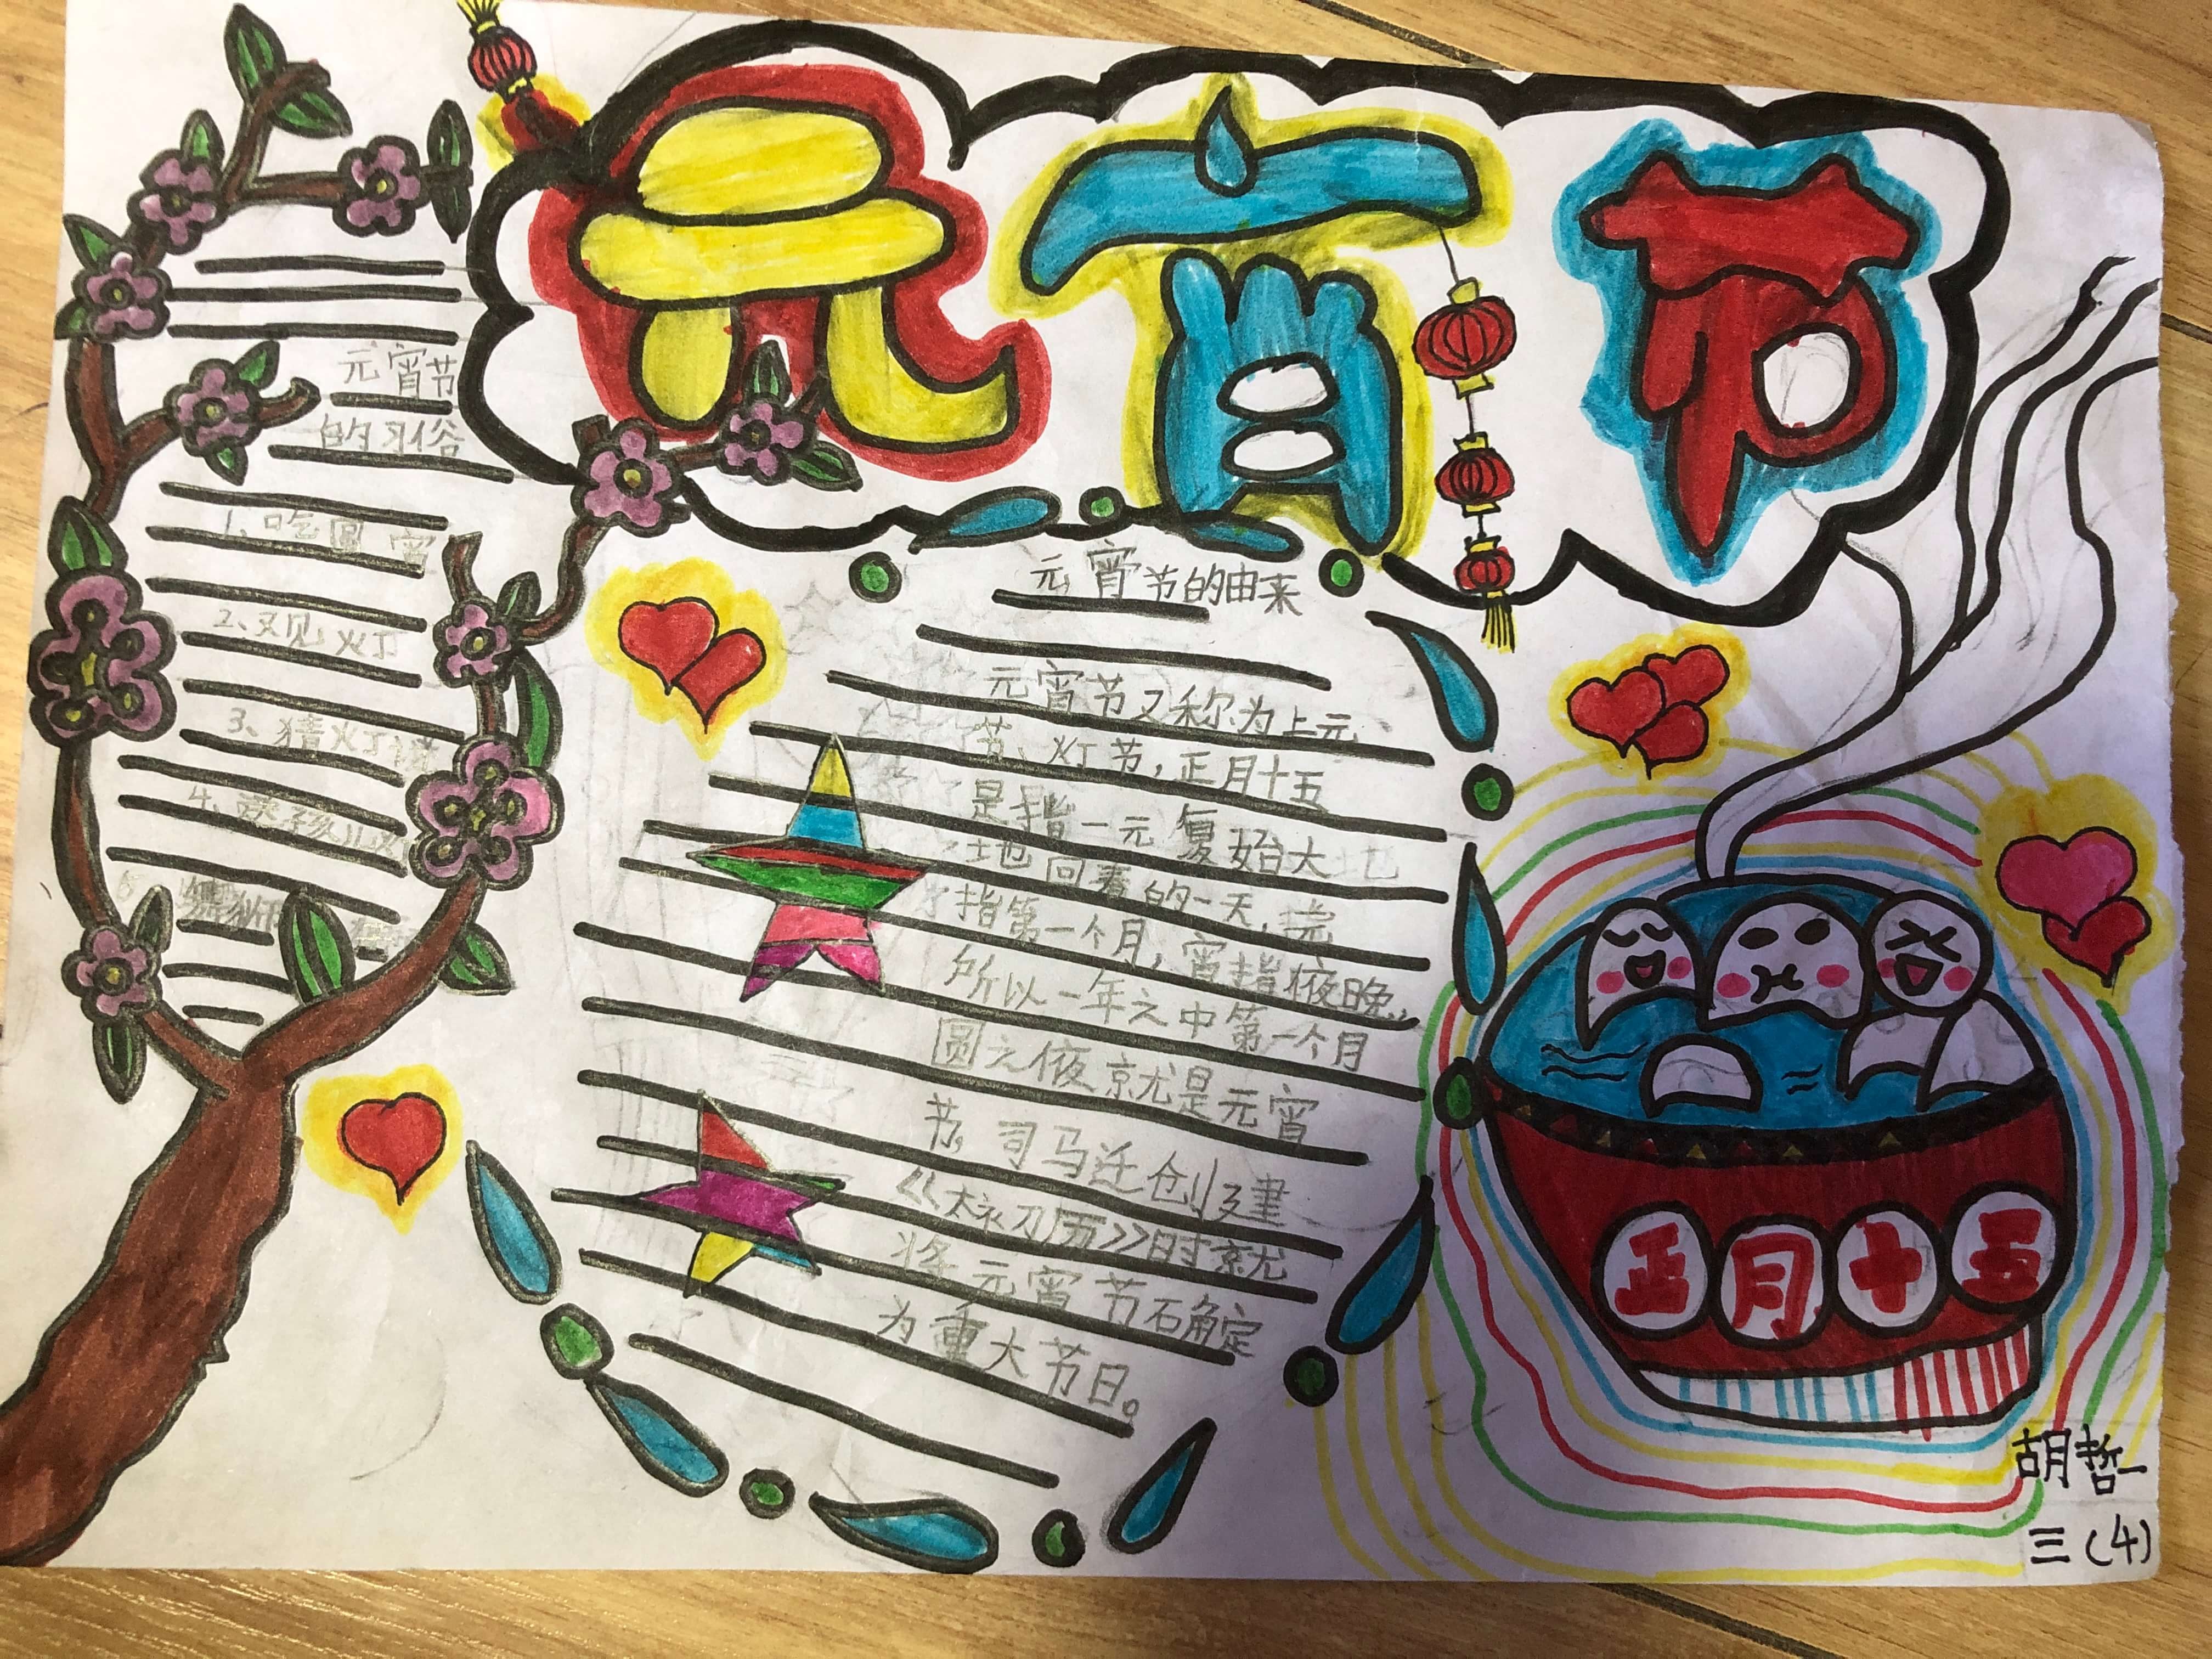 元宵节
元宵节
的习俗
1、吃圆宵
2、观灯
3、猜灯谜
元宵节的由来
元宵节又称为上元
节、灯节，正月十五
是指一元复始大
地回春的一天，
指第一个月，宵指夜晚，
所以一年之中第一个月
圆之夜就是元宵
节。司马迁创建
《太初历》时就
将元宵节确定
为重大节日。
正月十五
胡哲一
三(4)